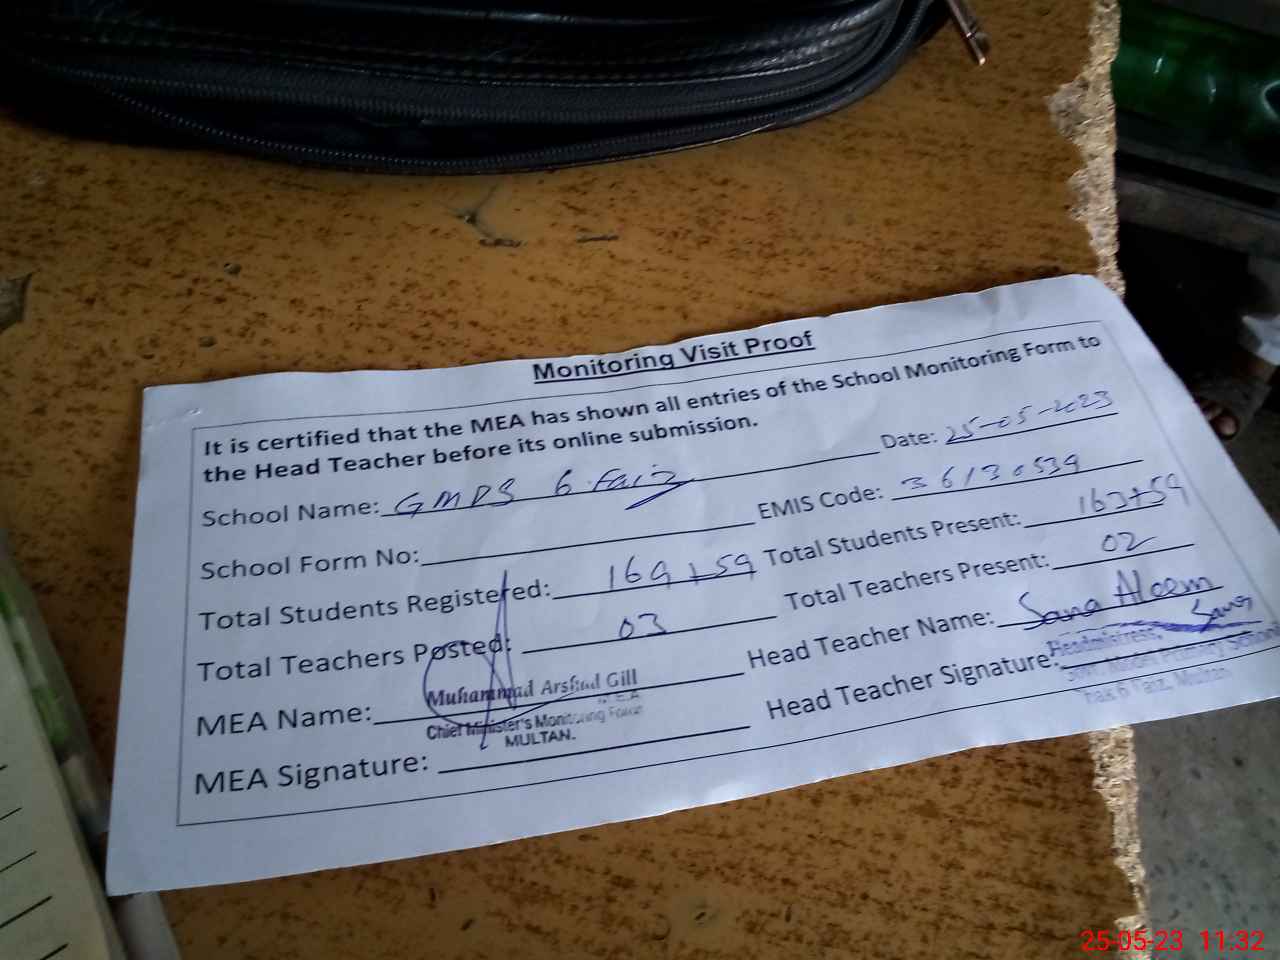 Monitoring Visit Proof
It is certified that the MEA has shown all entries of the School Monitoring Form to
the Head Teacher before its online submission.
Date: 25-05-2023
School Name: GMPS 6. Faiz
EMIS Code: 36130539
School Form No:
Total Students Registered: 169+59
Total Students Present: 163+59
Total Teachers Posted: 03
Total Teachers Present: 02
MEA Name:
Muhammad Arshad Gill
M.E.A
Chief Minister's Monitoring Force
MULTAN.
Head Teacher Name: Sana Aleem
MEA Signature:
Head Teacher Signature: Sana
Headmistress,
Govt. Model Primary School
Chak 6 Faiz, Multan
25-05-23 11:32